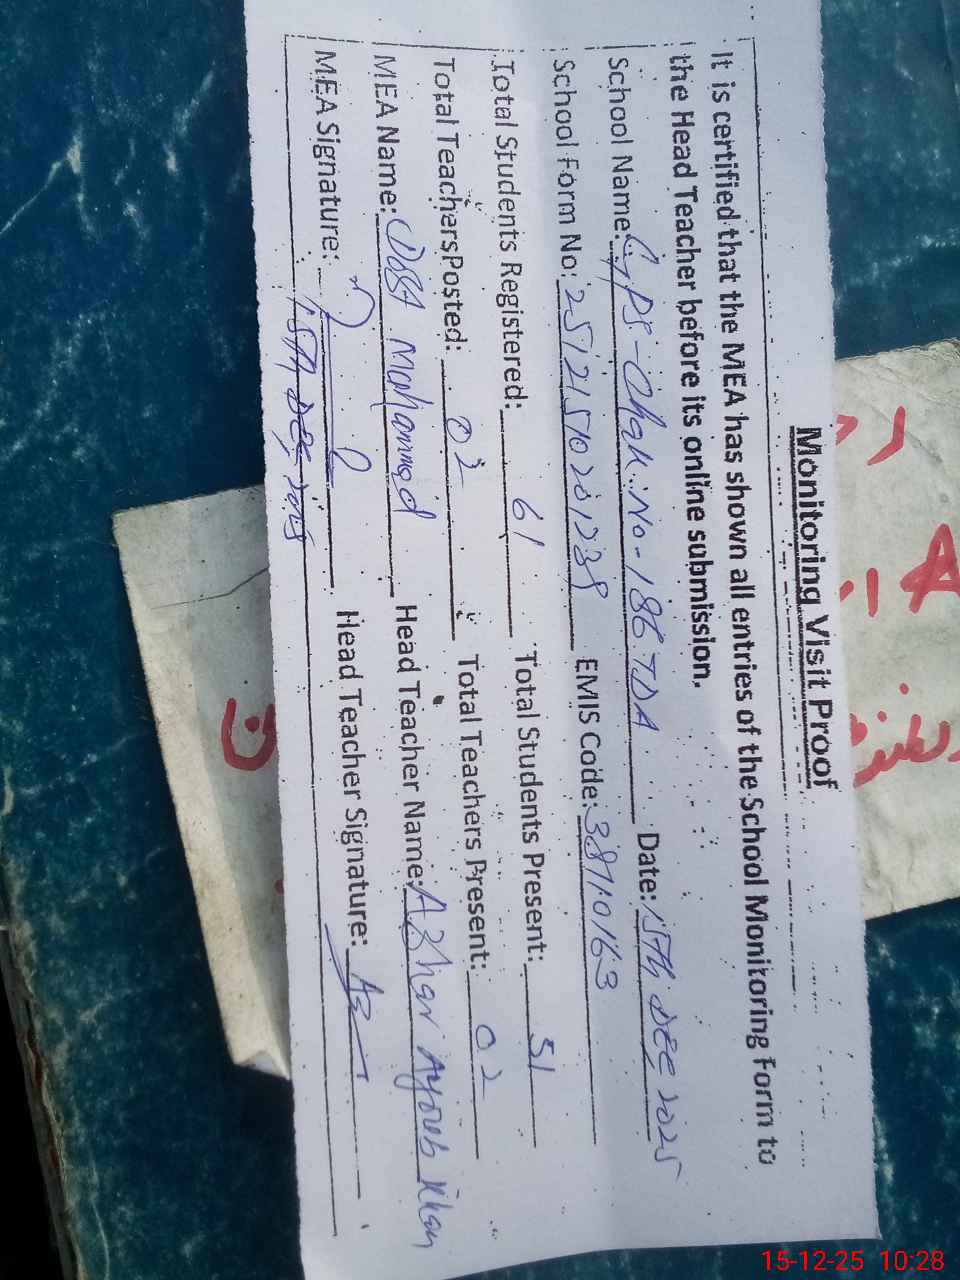 Monitoring Visit Proof
It is certified that the MEA has shown all entries of the School Monitoring Form to
the Head Teacher before its online submission.
School Name: GPS-Chak.No-186 TDA Date: 15Th DEC 2025
School Form No: EMIS Code: 38710163
Total Students Registered: 61 Total Students Present: 51
Total Teachers Posted: 02 Total Teachers Present: 02
MEA Name: Dost Mohammad Head Teacher Name: Azhar Ayoub Khan
MEA Signature: Head Teacher Signature:
15Th DEC 2025
15-12-25 10:28